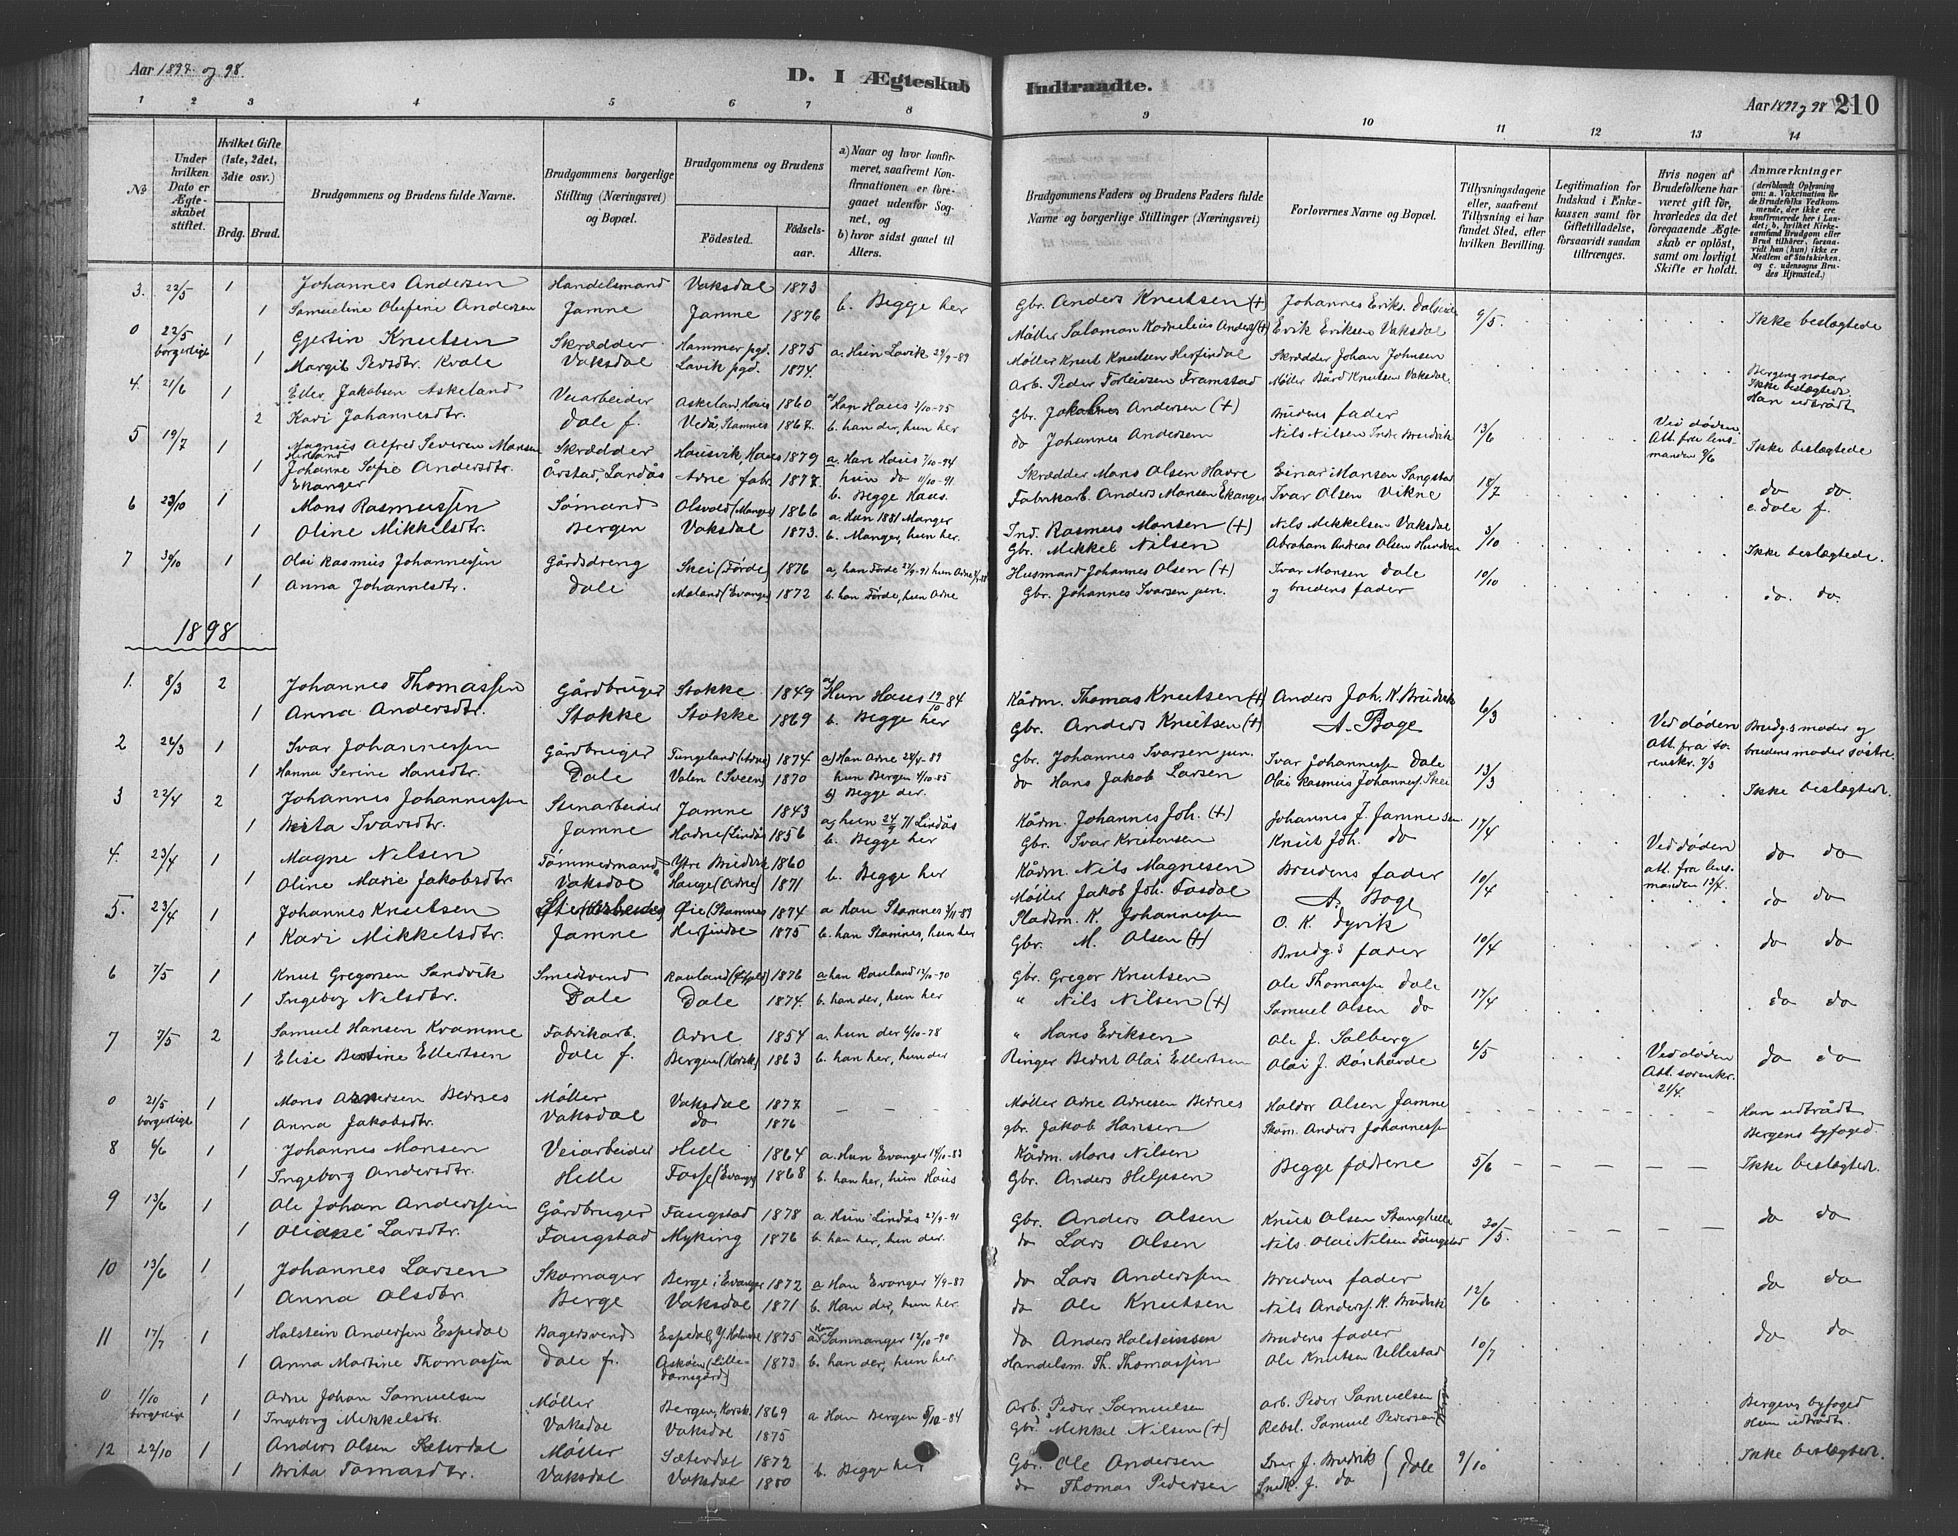 Aar 1897 og 98.
D. I Ægteskab
Indtraadte.
Aar 1897 og 98
210
1 2 3 4 5 6 7 8 9 10 11 12 13 14
No
Under hvilken Dato er Ægteskabet stiftet.
Hvilket Gifte (1ste, 2det, 3die osv.)
Brdg. Brud.
Brudgommens og Brudens fulde Navne.
Brudgommens borgerlige Stilling (Næringsvei) og Bopæl.
Brudgommens og Brudens
Fødested. Fødselsaar.
a) Naar og hvor konfirmeret, saafremt Konfirmationen er foregaaet udenfor Sognet, og
b) hvor sidst gaaet til Alters.
Brudgommens Faders og Brudens Faders fulde Navne og borgerlige Stillinger (Næringsvei)
Forlovernes Navne og Bopæl.
Tillysningsdagene eller, saafremt Tillysning ei har fundet Sted, efter hvilken Bevilling.
Legitimation for Indskud i Enkekassen samt for Giftetilladelse, forsaavidt saadan tiltrænges.
Hvis nogen af Brudefolkene har været gift før, hvorledes da det foregaaende Ægteskab er opløst, samt om lovligt Skifte er holdt.
Anmærkninger
(deriblandt Oplysning om: a. Vakcination for de Brudefolks Vedkommende, der ikke ere konfirmerede her i Landet; b. hvilket Kirkesamfund Brudgom eller Brud tilhører, forsaavidt han (hun) ikke er Medlem af Statskirken, og c. udensogns Brudes Hjemsted.)
3. 22/5 1 Johannes Andersen Handelsmand Vaksdal 1873 b. Begge her Gbr. Anders Knutsen (+) Johannes Eriks. 9/5. Ikke beslægtede
1 Samueline Olufine Andersen Jamne Jamne 1876 Møller Salomon Kornelius Anders(+) Erik Eriksen Vaksdal
0 22/5 borgerligt 1 Gjertin Knutsen Skrædder Hammer pgd. 1875 a. Hun Lavik 29/9-89 Møller Knut Knutsen Herfindal Skrædder Johan Johnsen
1 Margit Persdtr. Kvale Vaksdal Lavik pgd. 1874. Arb. Peder Torleivsen Framstad Møller Bård Knutsen Vaksdal. Bergens notar Ikke beslægtede Han udtrådt
4. 21/6 1 Eller Jakobsen Askeland Veiarbeider Askeland, Haus 1860 a) Han Haus 3/10-75 Gbr. Jakob Andersen (+) Brudens fader 13/6 Ved døden. Att. fra lensmanden 9/6 Ikke beslægtede
2 Kari Johannesdtr. Dale f. Vedå, Stamnes 1867. b. han der, hun her do Johannes Andersen Nils Nilsen Indre Brudvik
5 19/7 1 Magnus Alfred Severin Mansen Skrædder Hausvik, Haus 1879 a. Han Haus 7/10-94 Skrædder Mons Olsen Havre Einar Mansen Sangstad 18/7 do do
1 Johanne Sofie Andersdtr. Ekanger Årstad, Landås Arne fabr. 1877. hun do 11/10-91 b. Begge Haus. Fabrikarb. Anders Monsen Ekanger Ivar Olsen Vikne c. Dale f.
6 23/10 1 Mons Rasmussen Sømand Olsvold (Manger) 1866 a. Han 1881 Manger Ind. Rasmus Monsen (+) Nils Mikkelsen Vaksdal 3/10 Ikke beslægtede.
1 Oline Mikkelsdtr. Bergen Vaksdal 1873. b. Manger, hun her. Gbr. Mikkel Nilsen Abraham Andreas Olsen
7 30/10 1 Olai Rasmus Johannessen Gårdsdreng Skei (Førde) 1876 a, han Førde 27/9-91 hun Arne Husmand Johannes Olsen (+) Ivar Monsen Dale 10/10 do. do.
1 Anna Johannesdtr. Dale (Evanger) 1872 b. han Førde, hun Arne Gbr. Johannes Ivarsen jun. og brudens fader
1898
1. 8/3 2 Johannes Thomassen Gårdbruger Stokke 1849 a) Hun Haus 19/10 84 Kådm. Thomas Knutsen (+) Anders Joh. N. Brudvik 6/3 Ved døden Att. fra sorenskr. 7/3 Brudg.s moder og brudens moder søstre
1 Anna Andersdtr. Stokke Stokke 1869 b. Begge her Gbr. Anders Knutsen (+) A. Boge
2 26/3 1 Ivar Johannessen Gårdbruger Fungeland (Arne) 1874 a) Han Arne 28/4-89 Gbr. Johannes Ivarsen jun. Ivar Johannessen Dale 13/3 Ikke beslægtet.
1 Hanna Serine Hansdtr. Dale Valen (Sveen) 1870 hun Bergen 4/10-85 b) Begge der. do Hans Jakob Larsen Olai Rasmus Johannes. Skei
3 22/4 2 Johannes Johannessen Stenarbeider Jamne 1843 a) hun 24/9 71 Lindås Kådm. Johannes Joh. (+) Johannes J. Jamne sen 17/4 Ved døden att. fra lensmanden 13/4. do do
1 Brita Ivarsdtr. Jamne Hodne (Lindås) 1856 b. Begge her Gbr. Ivar Kristensen Knut Joh. do
4. 23/4 1 Magne Nilsen Tømmermand Ytre Brudvik 1860 b. Begge her Kådm. Nils Magnesen Brudens fader 10/4 do do
1 Oline Marie Jakobsdtr. Vaksdal Hauge (Arne) 1871 Møller Jakob Joh. Fosdal A. Boge
5. 23/4 1 Johannes Knutsen Stenarbeider Øie (Stamnes) 1874 a Han Stamnes 3/11-89 Pladsm. K. Johannessen O. K. Dyvik 10/4 do do
1 Kari Mikkelsdtr. Jamne Herfindal 1875 b. han Stamnes, hun her Gbr. M. Olsen (+) Brudg.s fader
6 7/5 1 Knut Gregorsen Sandvik Smedsvend Rauland 1876 a han Rauland 12/10-90 Gbr. Gregor Knutsen Ole Thomassen Dale 17/4 do do
1 Ingeborg Nilsdtr. Dale Dale 1874. b. han der, hun her " Nils Nilsen (+) Samuel Olsen do
7 7/5 2 Samuel Hansen Kvamme Fabrikarb. Arne 1854 a. hun der 6/10-78 " Hans Eriksen Ole J. Solberg 6/5 Ved døden Att. sorenskr. 21/4. do do
1 Elise Bertine Ellertsen Dale f. Bergen (Korsk.) 1863 b. han her, hun der Ringer Bernt Olai Ellertsen Olai J. Rønhovde
0 21/5 borgerligt 1 Mons Arnesen Bernes Møller Vaksdal 1877 – – – Møller Arne Arnesen Bernes Haldor Olsen Jamne Han udtrådt
1 Anna Jakobsdtr. Vaksdal do 1876 gbr. Jakob Hansen Skom. Anders Johannessen Bergens byfoged.
8 6/6 1 Johannes Monsen Veiarbeider Helle 1864 a. Hun Evanger 14/10-83 Kådm. Mons Nilsen Begge fædrene 5/6 Ikke beslægtet.
1 Ingeborg Andersdtr. Helle Fosse (Evanger) 1868 b. han her, hun Haus Gbr. Anders Helgesen
9 13/6 1 Ole Johan Anderssen Gårdbruger Faugstad 1878 a. Hun Lindås 27/9-91 Gbr. Anders Olsen Knut Olsen Stanghelle 20/5. do do
1 Oliane Larsdtr. Faugstad Myking 1876 b. han her, hun der. do Lars Olsen Nils Olai Nilsen Faugstad
10 13/6 1 Johannes Larsen Skomager Berge i Evanger 1872 a Han Evanger 7/9-87 do Lars Anderssen Brudens fader 12/6 do do
1 Anna Olsdtr. Berge Vaksdal 1871 b. Han der, hun her. do Ole Knutsen Nils Anders. N. Brudvik
11 17/7 1 Halstein Andersen Espedal Bagersvend Espedal, 1875 a) Han Samnanger 12/10-90 do Anders Halsteinssen Brudens fader 10/7 do do
1 Anna Martine Thomassen Dale f. Askøen (Lille-Damsgård) 1873 b. han der, hun her. Handelsm. Th. Thomassen Ole Knutsen Ullestad
0 1/10 borgerligt 1 Arne Johan Samuelsen Møller Bergen, Korsk. 1869 a Han Bergen 5/10-84 Arb. Peder Samuelsen Arb. Peder Samuelsen Bergens byfoged
1 Ingeborg Mikkelsdtr. Vaksdal Vaksdal 1875 Gbr. Mikkel Nilsen (+) Rebsl. Samuel Pedersen Hun udtrådt.
12 22/10 1 Anders Olsen Sæterdal Møller Sæterdal 1872 b. Begge her Gbr. Ole Andersen J. Brudvik Dale 9/10 Ikke beslægtet.
1 Brita Tomasdtr. Vaksdal Vaksdal 1880 do Thomas Pedersen J. do